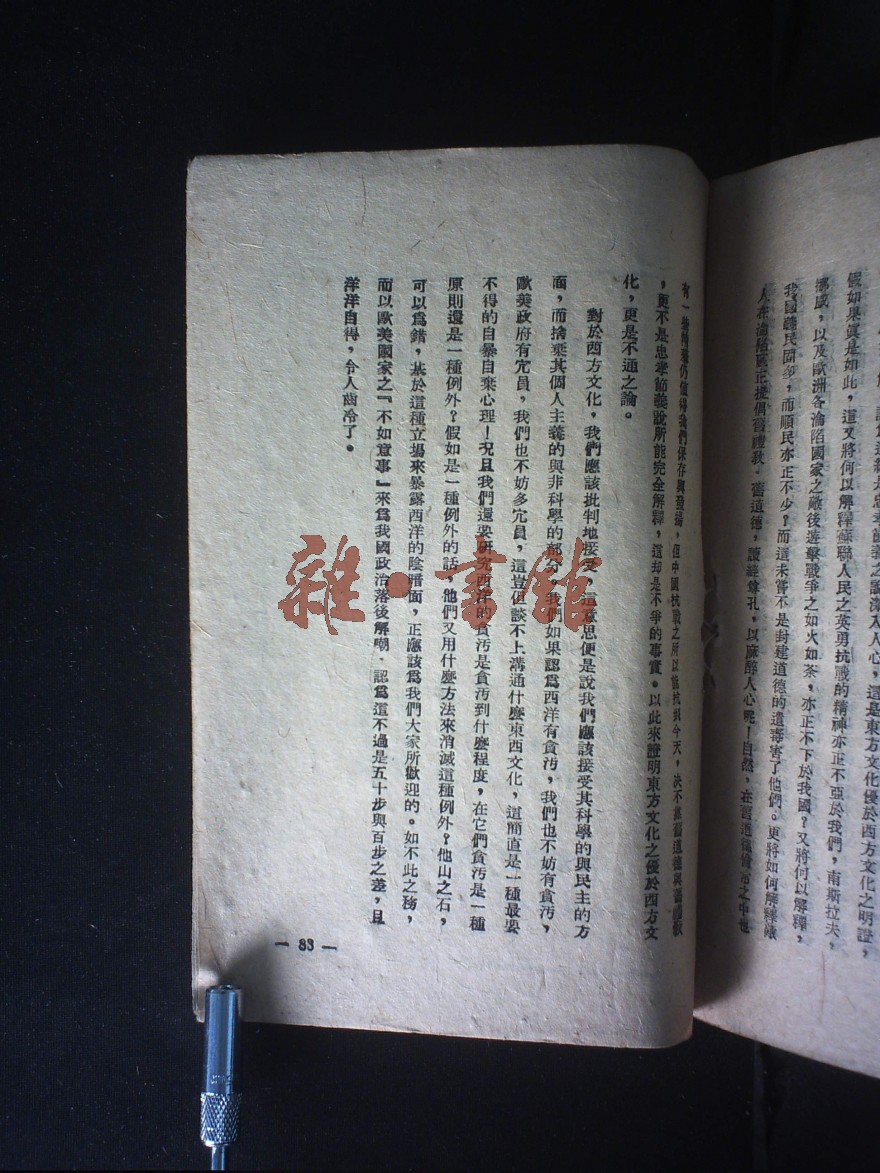 假如果眞是如此，這又將何以解釋蘇聯人民之英勇抗戰的精神亦正不亞於我們，南斯拉夫，
挪威，以及歐洲各淪陷國家之敵後遊擊戰爭之如火如荼，亦正不下於我國？又將何以解釋，
我國義民固多，而順民亦正不少？而這未嘗不是封建道德的遺毒害了他們。更將如何解釋敵
人在淪陷區正提倡舊禮敎，舊道德，讀經尊孔，以麻醉人心呢！自然，在舊道德舊 之中也
有一些 仍值得我們保存與發揚，但中國抗戰之所以能抗到今天，決不是舊道德與舊禮敎
，更不是忠孝節義說所能完全解釋，這却是不爭的事實。以此來證明東方文化之優於西方文
化，更是不通之論。
對於西方文化，我們應該批判地接受，這意思便是說我們應該接受其科學的與民主的方
面，而捨棄其個人主義的與非科學的部分，我們如果認爲西洋有貪汚，我們也不妨有貪汚，
歐美政府有冗員，我們也不妨多冗員，這豈但談不上溝通什麼東西文化，這簡直是一種最要
不得的自暴自棄心理！况且我們還要研究西洋的貪汚是貪汚到什麼程度，在它們貪汚是一種
原則還是一種例外？假如是一種例外的話，他們又用什麼方法來消滅這種例外？他山之石，
可以爲錯，基於這種立場來暴露西洋的陰暗面，正應該爲我們大家所歡迎的。如不此之務，
而以歐美國家之『不如意事』來爲我國政治落後解嘲，認爲這不過是五十步與百步之差，且
洋洋自得，令人齒冷了。
— 83 —
雜·書館